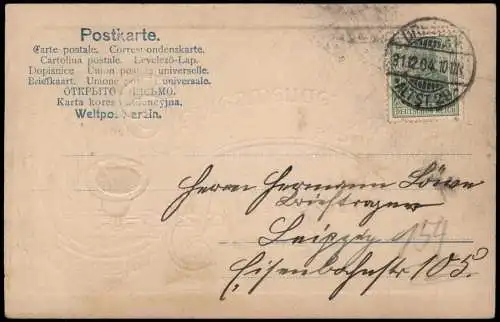 Postkarte.
Carte postale. Correspondenzkarte.
Cartolina postale. Levelező-Lap.
Dopisnice Union postale universelle.
Briefkaart. Unione postale universale.
ОТКРЫТОЕ ПИСЬМО.
Karta korespondencyjna.
Weltpostverein.
31.12.04. 10-11N.
DEUTSCHES REICH
Herrn Hermann Löwe
Briefträger
Leipzig 159
Eisenbahnstr 105.